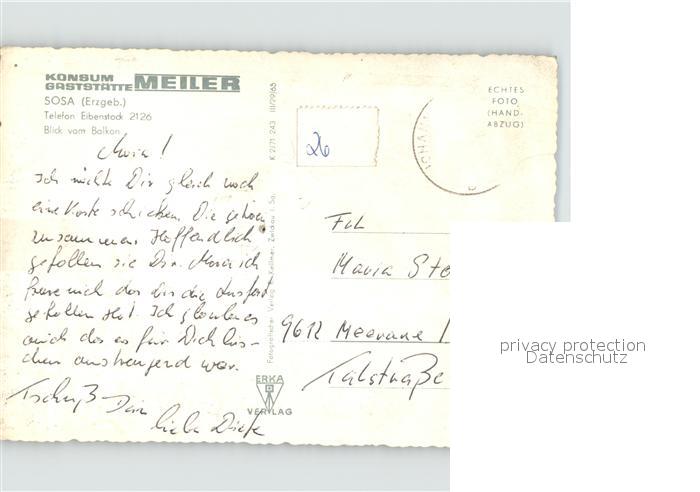 KONSUM
GASTSTÄTTE MEILER
SOSA (Erzgeb.)
Telefon Eibenstock 2126
Blick vom Balkon
Ich möchte Dir gleich noch
eine Karte schicken. Die gehören
zusammen. Hoffendlich
gefallen sie Dir. ich
freue mich das dir die
gefallen hat. Ich glaube es
auch das es für Dich bis-
chen anstrengend war.
Tschüß Deine
liebe
K 2/71 243 III/29/65
Fotografischer Verlag Zwickau i. Sa.
ERKA
VERLAG
26
ECHTES
FOTO
(HAND-
ABZUG)
JOHANN
Frl
Maria
9612 Meerane
Talstraße
privacy protection
Datenschutz